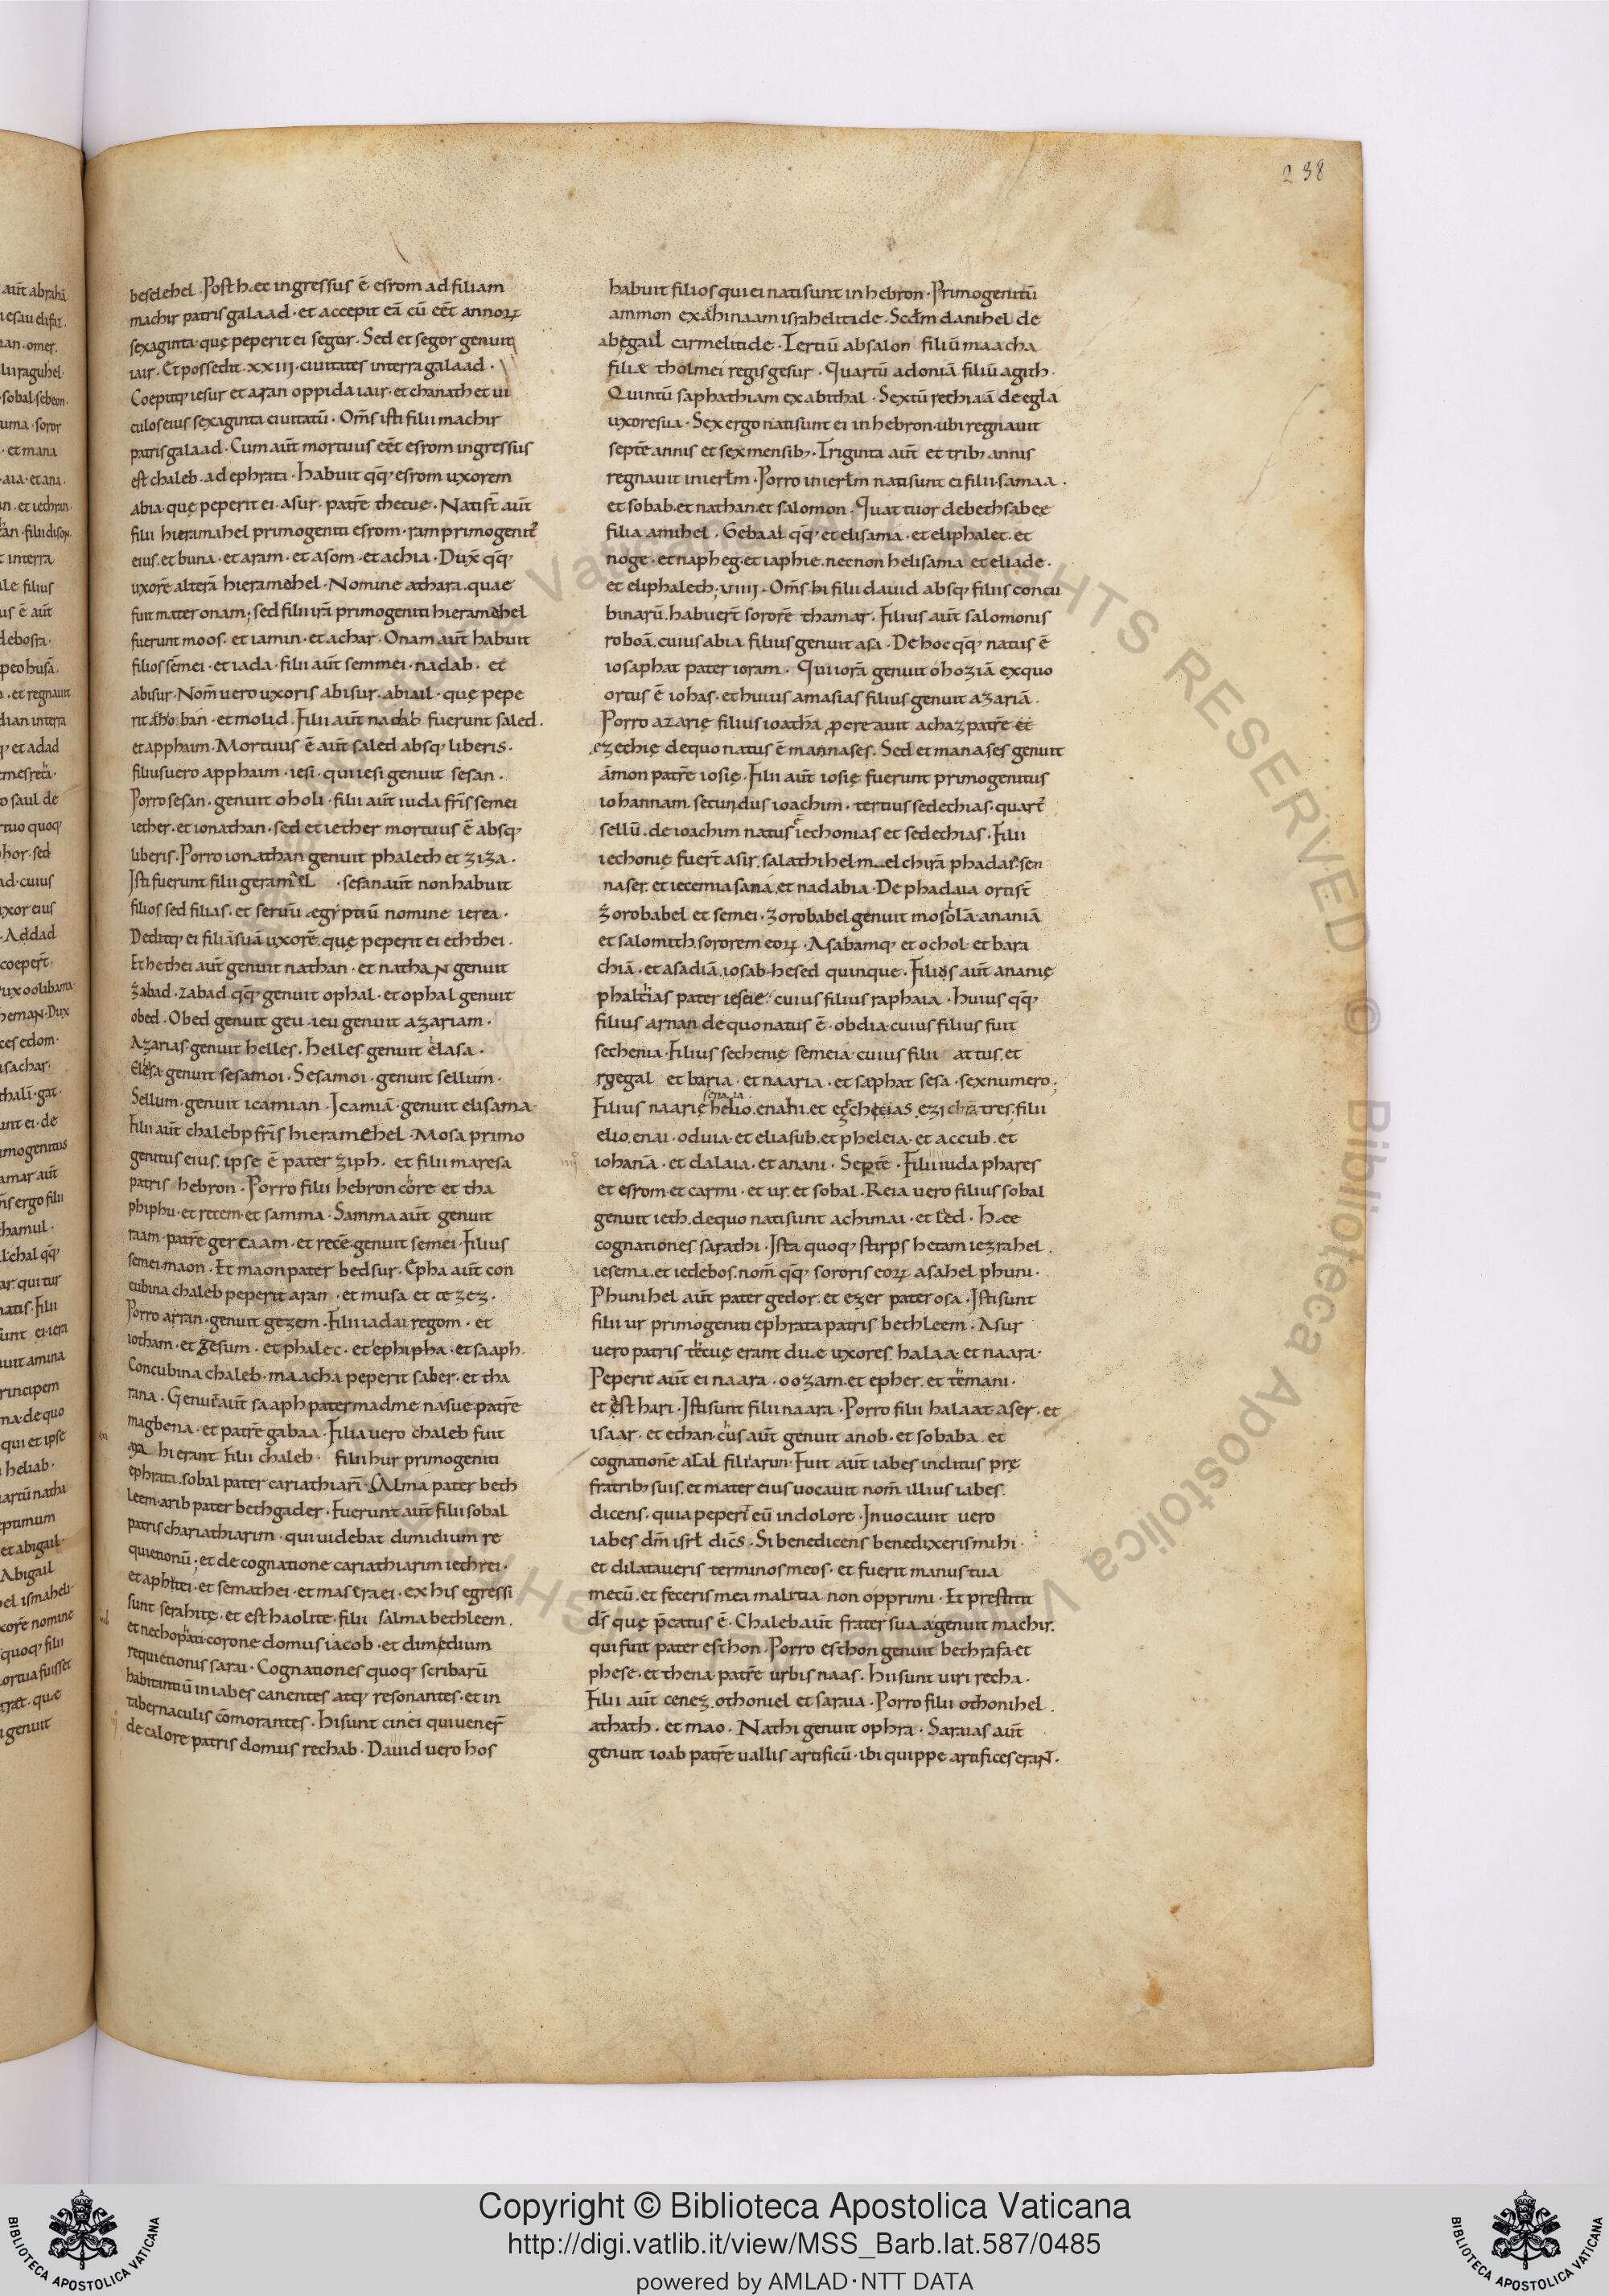 238
beselehel. Post hæc ingressus ē esrom ad filiam
machir patris galaad · et accepit eā cū eēt annoꝝ
sexaginta · quę peperit ei segur · Sed et segor genuit
iair · Et possedit · xxiii · ciuitates interra galaad ·
Coepitqꝫ iesur et aran oppida iair · et chanath et ui
culos eius sexaginta ciuitatū · Om̄s isti filii machir
patris galaad · Cum aūt mortuus eēt esrom ingressus
est chaleb · ad ephrata · Habuit qq̄ꝫ esrom uxorem
abia · quę peperit ei · asur · patrē thecue · Nati st̄ aūt
filii hieramahel primogeniti esrom · ram primogenit᷒
eius · et buna · et aram · et asom · et achia · Dux̄ qq̄ꝫ
uxorē alterā hieramehel · Nomine athara · quae
fuit mater onam; sed filii irā primogeniti hieramehel
fuerunt moos · et iamin · et achar · Onam aūt habuit
filios semei · et iada · filii aūt semmei · nadab · et
abisur · Nom̄ uero uxoris abisur · abiail · quę pepe
rit aho ban · et molid · Filii aūt nadab fuerunt saled ·
et apphaim · Mortuus ē aūt saled absqꝫ liberis ·
filius uero apphaim · iesi · qui iesi genuit sesan ·
Porro sesan · genuit oholi · filii aūt iuda fr̄is semei
iether · et ionathan · sed et iether mortuus ē absqꝫ
liberis · Porro ionathan genuit phaleth et ziza ·
Isti fuerunt filii geramel · sesan aūt non habuit
filios sed filias · et seruū ægyptiū nomine ierea ·
Deditqꝫ ei filiā suā uxorē · quę peperit ei eththei ·
Et hethei aūt genuit nathan · et nathan genuit
zabad · zabad qq̄ꝫ genuit ophal · et ophal genuit
obed · Obed genuit geu · ieu genuit azariam ·
Azarias genuit helles · helles genuit elasa ·
Elesa genuit sesamoi · Sesamoi · genuit sellum ·
Sellum · genuit icamian · Icamiā · genuit elisama ·
Filii aūt chaleb fr̄is hieramehel · Mosa primo
genitus eius · ipse ē pater ziph · et filii maresa
patris hebron · Porro filii hebron core et tha
phiphu · et recem · et samma · Samma aūt genuit
raam · patrē gercaam · et recē · genuit semei · Filius
semei · maon · Et maon pater bedsur · Epha aūt con
cubina chaleb peperit aran · et musa et tezez ·
Porro arran · genuit gezem · Filii iadai regom · et
iotham · et gesum · et phalec · et ephipha · et saaph ·
Concubina chaleb · maacha peperit saber · et tha
rana · Genuit aūt saaph pater madme nasue patrē
magbena · et patrē gabaa · Filia uero chaleb fuit
hi erant filii chaleb · filii hur primogeniti
ephrata · sobal pater cariathiarī · Salma pater beth
leem · arib pater bethgader · Fuerunt aūt filii sobal
patris chariathiarim · qui uidebat dimidium re
quietionū; et de cognatione cariathiarim iethrei ·
et aphitei · et semathei · et maseraei · ex his egressi
sunt serahite · et esthaolite · filii salma bethleem ·
et nethophati · corone domus iacob · et dimedium
requietionis sarai · Cognationes quoqꝫ scribarū
habitantiū in iabes canentes atqꝫ resonantes · et in
tabernaculis cōmorantes · Hi sunt cinei qui uener̄
de calore patris domus rechab · Dauid uero hos
habuit filios qui ei nati sunt in hebron · Primogenitū
ammon ex ahinaam israhelitide · Secdm danihel de
abegail carmelitide · Tertiū absalon filiū maacha
filiæ tholmei regis gesur · Quartū adoniā filiū agith ·
Quintū saphathiam ex abithal · Sextū iethraā de egla
uxore sua · Sex ergo nati sunt ei in hebron · ubi regnauit
septē annis et sex mensibꝫ · Triginta aūt et tribꝫ annis
regnauit in ierłm · Porro in ierłm nati sunt ei filii · samaa ·
et sobab · et nathan · et salomon · Quattuor de bethsabee
filia amihel · Gebaal qq̄ꝫ et elisama · et eliphalet · et
noge · et napheg · et iaphie · necnon helisama et eliade ·
et eliphaleth; uiiii · Om̄s hi filii dauid absqꝫ filiis concu
binarū · habuer̄t sororē thamar · Filius aūt salomonis
roboā · cuius abia filius genuit asa · De hoc qq̄ꝫ natus ē
iosaphat pater ioram · Qui iorā genuit ohoziā ex quo
ortus ē iohas · et huius amasias filius genuit azariā ·
Porro azarię filius ioathā ꝓcreauit achaz patrē et
ezechię de quo natus ē mannases · Sed et manases genuit
āmon patrē iosię · Filii aūt iosię fuerunt primogenitus
iohannam · secundus ioachim · tertius sedechias · quart᷒
sellū · de ioachim natus ē iechonias et sedechias · Filii
iechonię fuer̄t asir · salathihel melchirā phadar sen
naser · et iecemia sana et nadabia · De phadaia orti st̄
zorobabel et semei · zorobabel genuit mosolā · ananiā
et salomith sororem eoꝝ · Asabamqꝫ et ochol · et bara
chiā · et asadiā · iosab · hesed quinque · Filius aūt ananię
phaltias pater ieseie · cuius filius raphaia · huius qq̄ꝫ
filius arnan de quo natus ē · obdia · cuius filius fuit
sechenia · Filius sechenię semeia · cuius filii attus · et
rgegal et baria · et naaria · et saphat sesa · sex numero ·
Filius naarię helio · enahi · et ezechię tres · filii
elio · enai · oduia · et eliasub · et pheleia · et accub · et
iohanā · et dalaia · et anani · Septē · Filii iuda phares
et esrom · et carmi · et ur · et sobal · Reia uero filius sobal
genuit ieth · de quo nati sunt achimai · et led · Hæc
cognationes sarathi · Ista quoqꝫ stirps hetam iezrahel ·
iesema · et iedebos · nom̄ qq̄ꝫ sororis eoꝝ asahel phuni ·
Phunihel aūt pater gedor · et ezer pater osa · Isti sunt
filii ur primogeniti ephrata patris bethleem · Asur
uero patris tecuę erant duæ uxores · halaa · et naara ·
Peperit aūt ei naara · oozam · et epher · et temani ·
et asthari · Isti sunt filii naara · Porro filii halaat · aser · et
isaar · et ethan · cus aūt genuit anob · et sobaba · et
cognationē asal filii arun · Fuit aūt iabes inclitus prę
fratribꝫ suis · et mater eius uocauit nom̄ illius iabes ·
dicens · quia peperi eū in dolore · Inuocauit uero
iabes dm̄ isrł dic̄s · Si benedicens benedixeris mihi ·
et dilataueris terminos meos · et fuerit manus tua
mecū · et feceris mea malitia non opprimi · Et prestitit
ds̄ quę p̄catus ē · Chaleb aūt frater sua · a genuit machir ·
qui fuit pater esthon · Porro esthon genuit bethrafa · et
phese · et thena · patrē urbis naas · Hi sunt uiri recha ·
Filii aūt cenez · othoniel et saraia · Porro filii othonihel ·
athath · et mao · Nathi genuit ophra · Saraias aūt
genuit ioab patrē uallis artificū · ibi quippe artifices erant ·
Copyright © Biblioteca Apostolica Vaticana
http://digi.vatlib.it/view/MSS_Barb.lat.587/0485
powered by AMLAD·NTT DATA